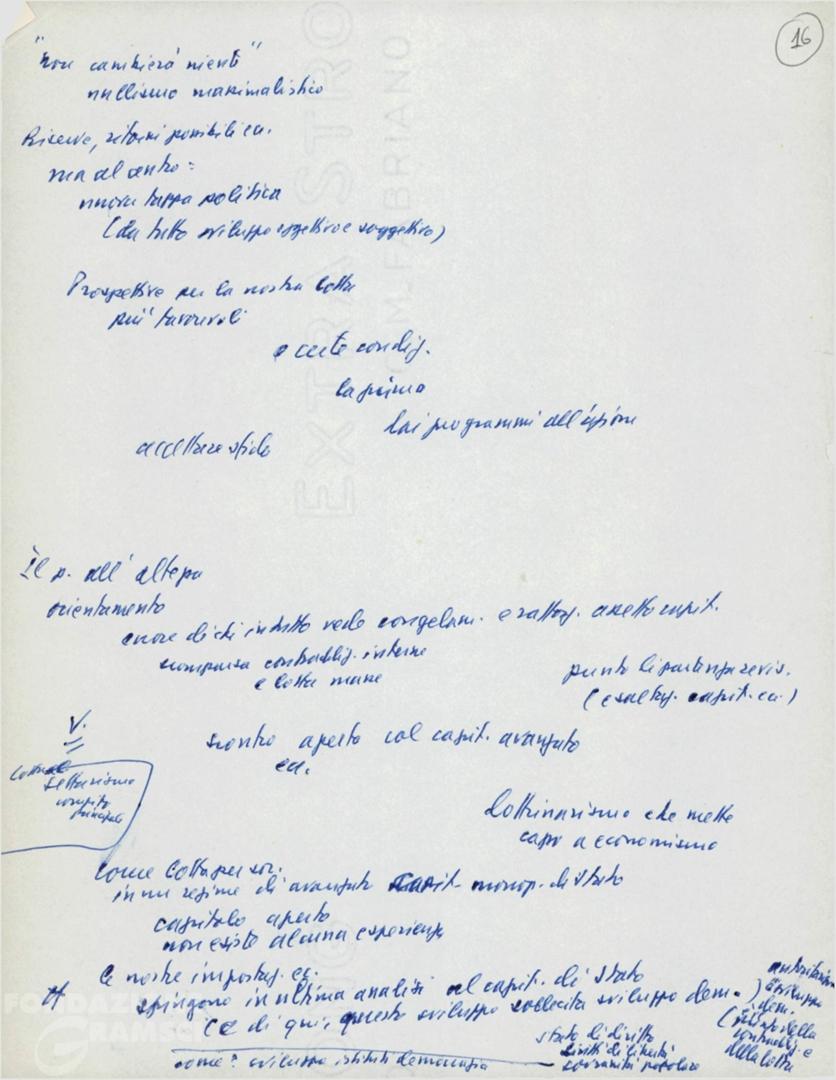 16
"non cambierà niente"
nullismo massimalistico
Riserve, ritorni possibili ecc.
ma al centro:
nuova tappa politica
(da tutto sviluppo oggettivo e soggettivo)
Prospettive per la nostra lotta
più favorevoli
a certe condiz.
la prima
dai programmi all'azione
accettare sfida
Il p. all'altezza
orientamento
errore di chi in tutto vede congelam. e rafforz. assetto capit.
scomparsa contraddiz. interne
e lotta masse
punto di partenza revis.
(esaltaz. capit. ecc.)
V.
scontro aperto col capit. avanzato
ecc.
settarismo
compito
principale
dottrinarismo che mette
capo a economismo
come lotta per soc.
in un regime di avanzato capit. monop. di stato
capitolo aperto
non esiste alcuna esperienza
le nostre impostaz. ecc.
spingono in ultima analisi al capit. di stato
e di qui, questo sviluppo sollecita sviluppo dem.
autoritarismo
sviluppo
dem.
della
contraddiz. e
della lotta
stato di diritto
diritti di libertà
sovranità popolare
come? sviluppo istituti democrazia
FONDAZIONE
GRAMSCI
EXTRA STRO
C.M. FABRIANO